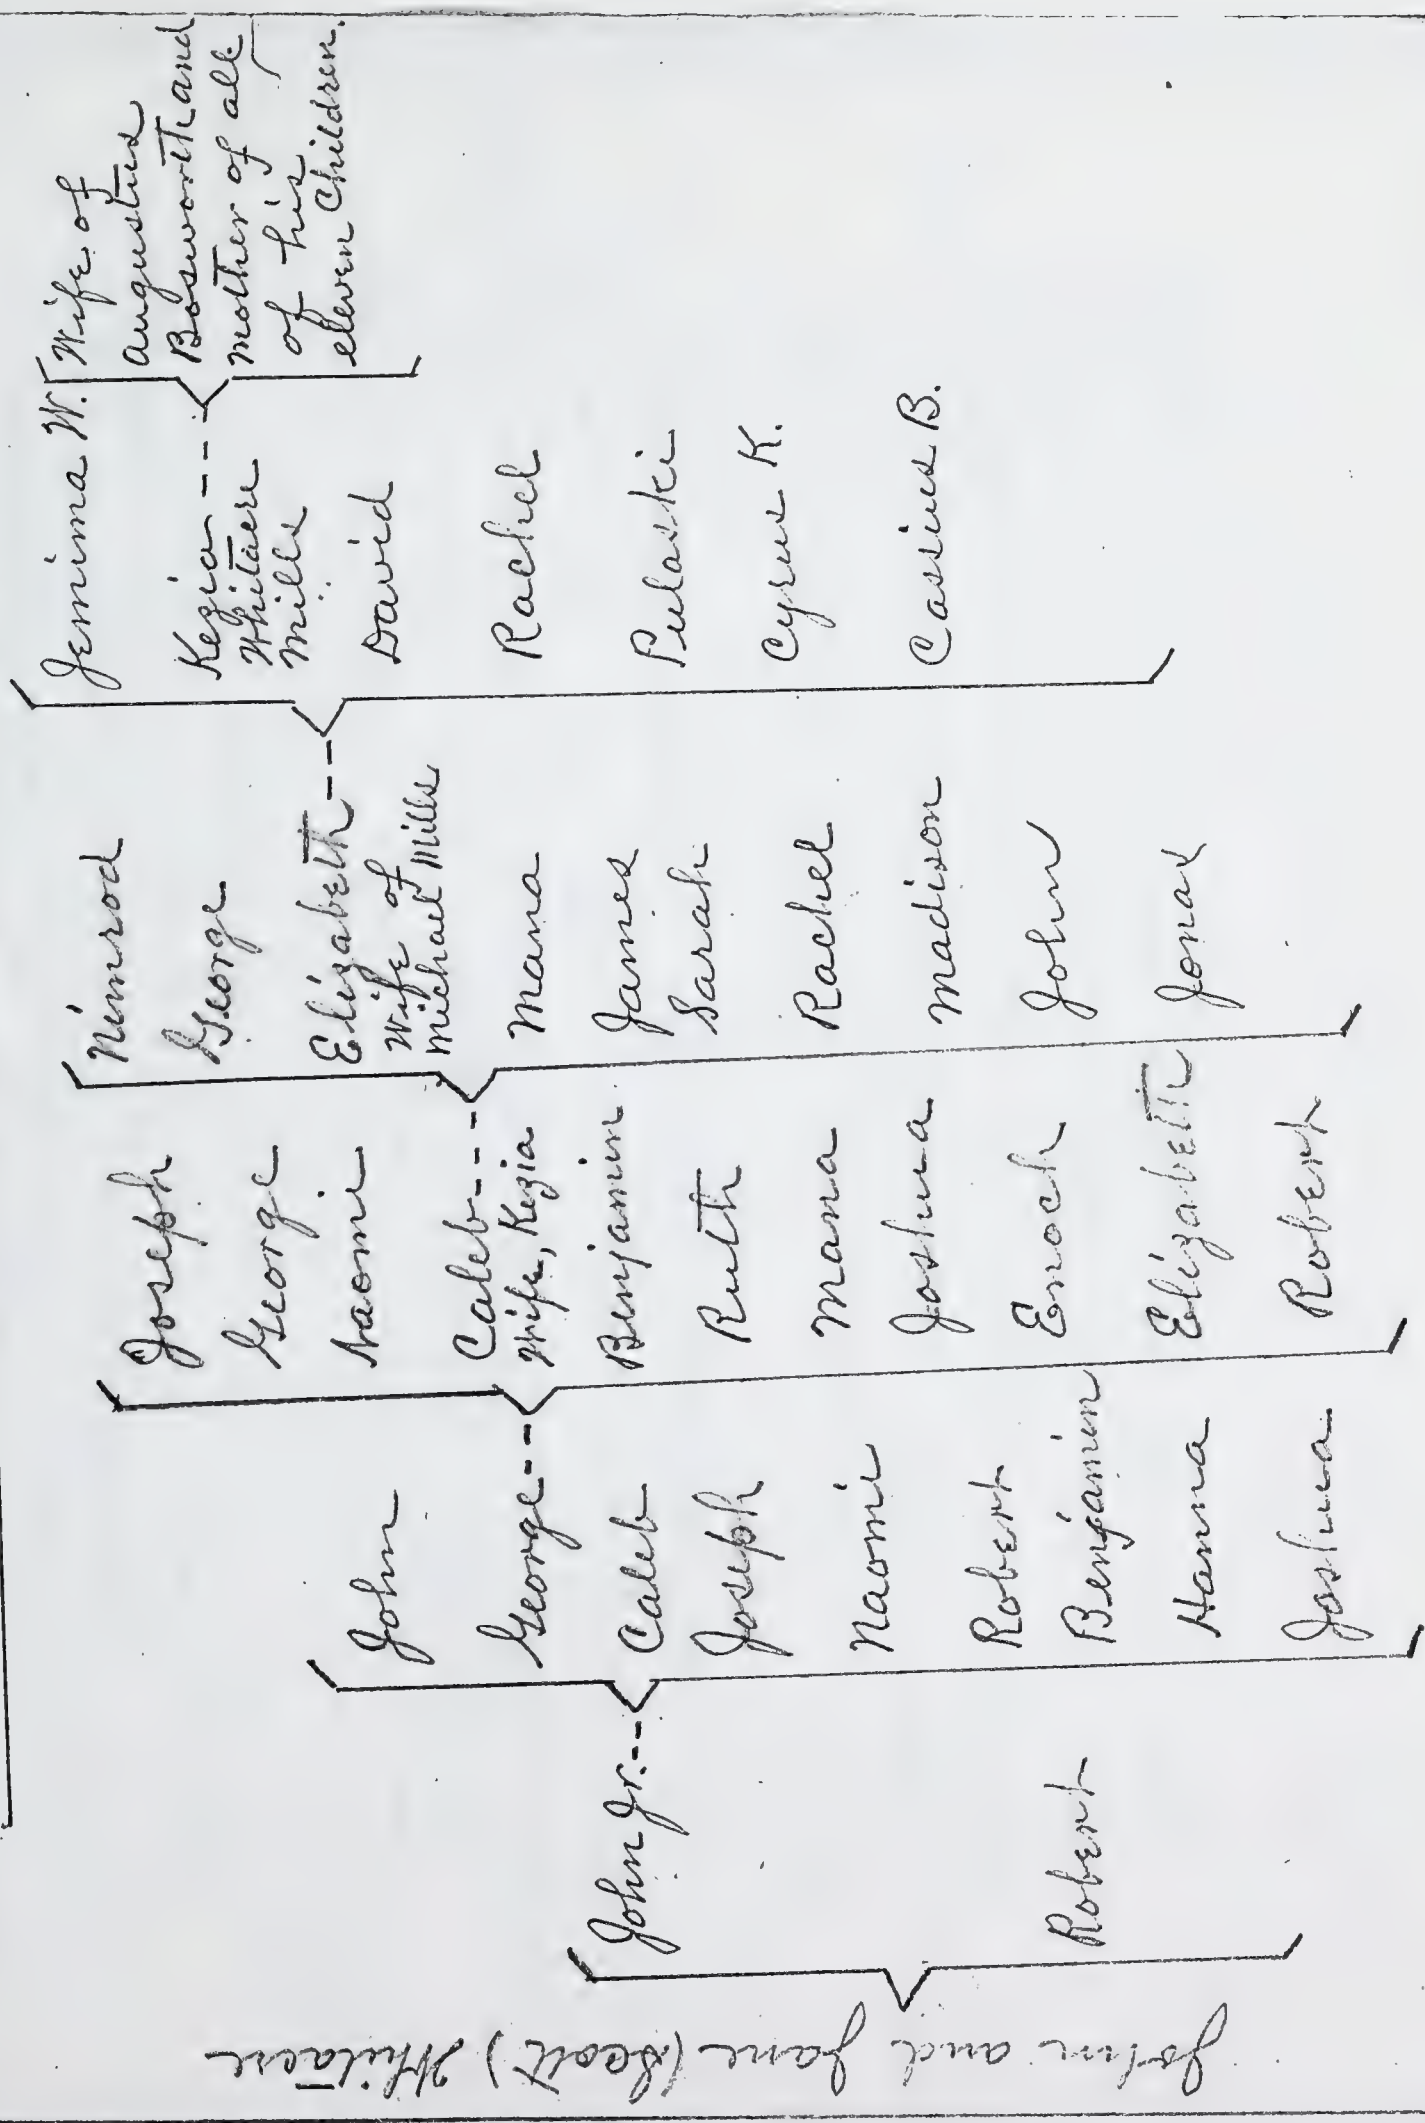 John and Jane (Scott) Whitacre
John Jr.
Robert
John
George
Caleb
Joseph
Naomi
Robert
Benjamin
Hanna
Joshua
Joseph
George
Naomi
Caleb
Wife, Kezia
Benjamin
Ruth
Mana
Joshua
Enoch
Elizabeth
Robert
Nimrod
George
Elizabeth
Wife of
Michael Mills
Mana
James
Sarah
Rachel
Madison
John
Jonas
Jemima W.
Kezia
Whitacre
Mills
David
Rachel
Pulaski
Cyrus K.
Casius B.
Wife of
Augustus
Bosworth and
mother of all
of his
eleven Children.